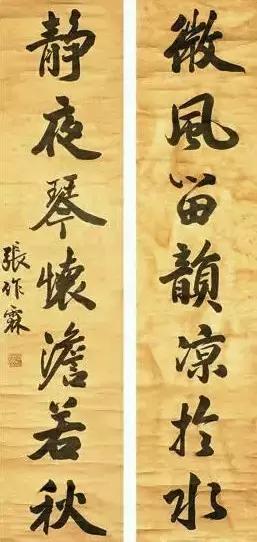 微風留韻凉於水
静夜琴懷澹若秋
張作霖